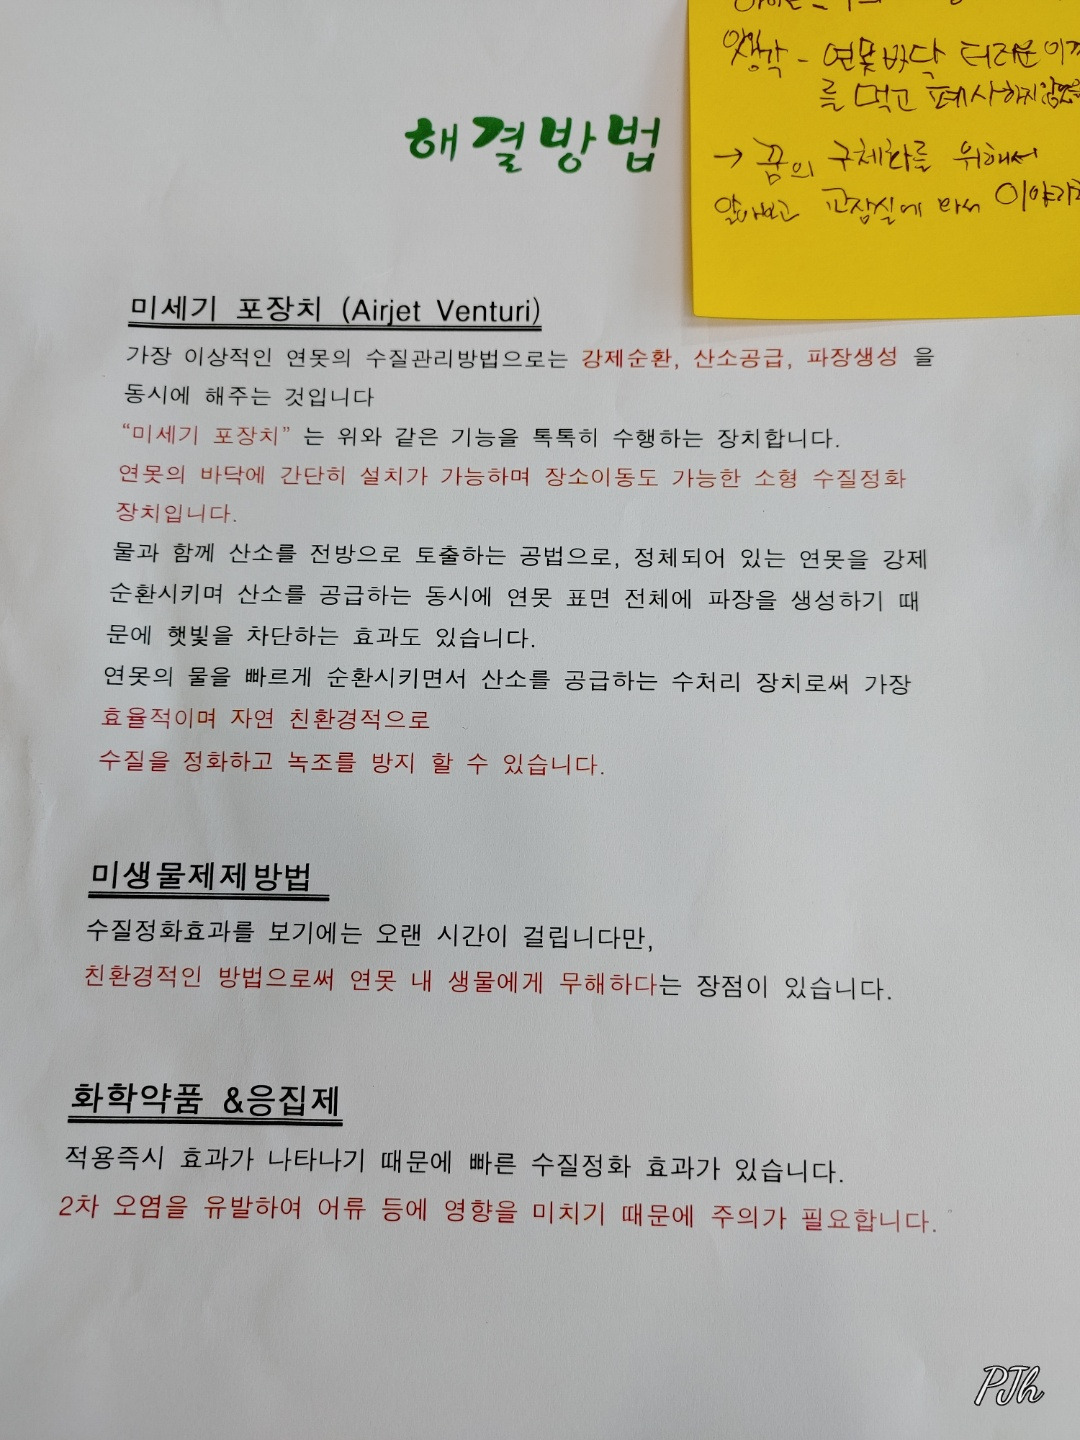 연못바닥 더러운 이끼
를 먹고 폐사하지 않았을
→ 꿈의 구체화를 위해서
알아보고 교장실에 와서 이야기
해결방법
미세기 포장치 (Airjet Venturi)
가장 이상적인 연못의 수질관리방법으로는 강제순환, 산소공급, 파장생성 을
동시에 해주는 것입니다
“미세기 포장치” 는 위와 같은 기능을 톡톡히 수행하는 장치합니다.
연못의 바닥에 간단히 설치가 가능하며 장소이동도 가능한 소형 수질정화
장치입니다.
물과 함께 산소를 전방으로 토출하는 공법으로, 정체되어 있는 연못을 강제
순환시키며 산소를 공급하는 동시에 연못 표면 전체에 파장을 생성하기 때
문에 햇빛을 차단하는 효과도 있습니다.
연못의 물을 빠르게 순환시키면서 산소를 공급하는 수처리 장치로써 가장
효율적이며 자연 친환경적으로
수질을 정화하고 녹조를 방지 할 수 있습니다.
미생물제제방법
수질정화효과를 보기에는 오랜 시간이 걸립니다만,
친환경적인 방법으로써 연못 내 생물에게 무해하다는 장점이 있습니다.
화학약품 &응집제
적용즉시 효과가 나타나기 때문에 빠른 수질정화 효과가 있습니다.
2차 오염을 유발하여 어류 등에 영향을 미치기 때문에 주의가 필요합니다.
PJh